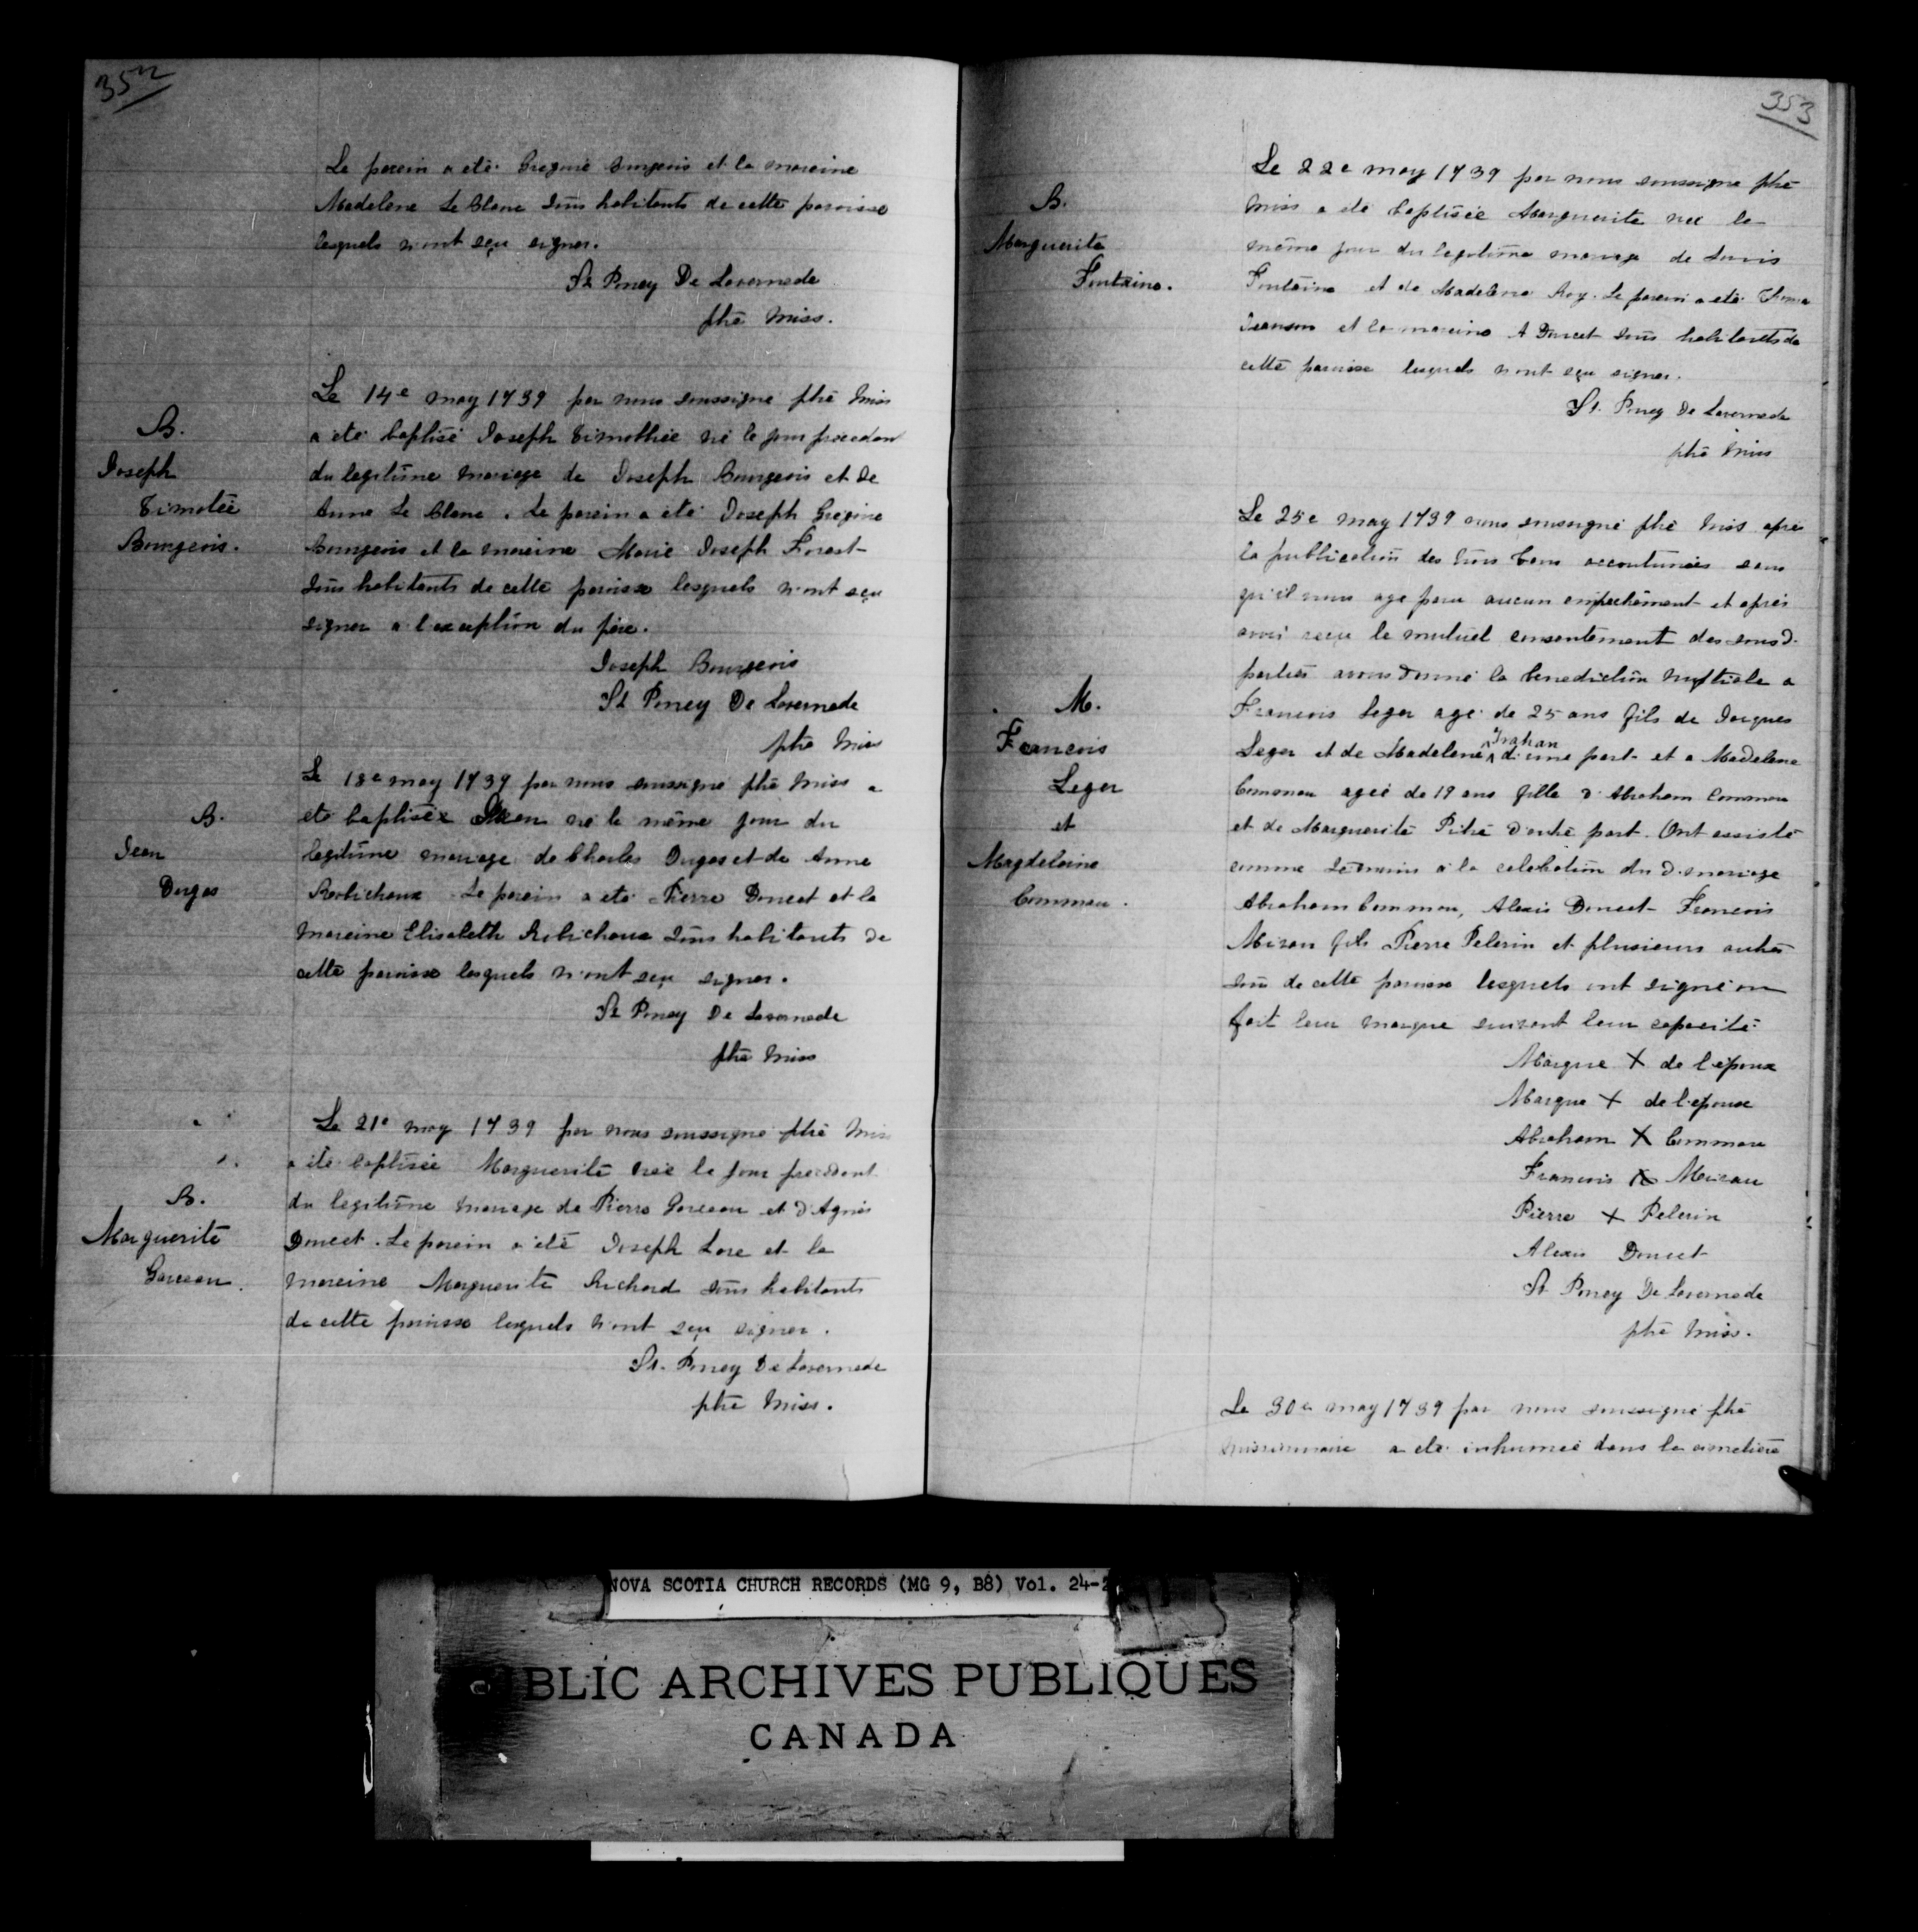 352
Le parein a eté Gregoire Bourgeois et la mareine
Madelene Le Blanc tous habitants de cette paroisse
lesquels n'ont sçu signer.
St Poncy De Lavernede
ptre Miss.
B.
Joseph
Timotée
Bourgeois.
Le 14e may 1739 par nous soussigne ptre Miss
a eté baptisé Joseph Timothée né le jour precedent
du legitime mariage de Joseph Bourgeois et de
Anne Le Blanc. Le parein a eté Joseph Gregoire
Bourgeois et la mareine Marie Joseph Forest
tous habitants de cette paroisse lesquels n'ont sçu
signer a l'exception du père.
Joseph Bourgeois
St Poncy De Lavernede
ptre Miss
B.
Jean
Dugas
Le 18e may 1739 par nous soussigne ptre Miss a
eté baptisée Jean né le même jour du
legitime mariage de Charles Dugas et de Anne
Robichaux Le parein a eté Pierre Doucet et la
mareine Elisabeth Robichaux tous habitants de
cette paroisse lesquels n'ont sçu signer.
St Poncy De Lavernede
ptre Miss
B.
Marguerite
Garceau.
Le 21e may 1739 par nous soussigne ptre Miss
a eté baptisée Marguerite née le jour precedent
du legitime mariage de Pierre Garceau et d'Agnés
Doucet. Le parein a eté Joseph Lore et la
mareine Marguerite Richard tous habitants
de cette paroisse lesquels n'ont sçu signer.
St. Poncy De Lavernede
ptre Miss.
353
B.
Marguerite
Fontaine.
Le 22e may 1739 par nous soussigne ptre
Miss a eté baptisée Marguerite née le
même jour du legitime mariage de Louis
Fontaine et de Madelene Roy. Le parein a eté
Jeanson et la mareine A Doucet tous habitants de
cette paroisse lesquels n'ont sçu signer.
St. Poncy De Lavernede
ptre Miss
M.
Francois
Leger
et
Magdelaine
Commau.
Le 25e may 1739 nous soussigné ptre Miss après
la publication des trois bans accoutumés sans
qu'il nous aye paru aucun empechement et après
avoir reçu le mutuel consentement des sousd.
parties avons donné la benediction nuptiale a
Francois Leger agé de 25 ans fils de Jacques
Leger et de Madelene Trahan d'une part et a Madelene
Commau agée de 19 ans fille d'Abraham Commau
et de Marguerite Pitré d'autre part. Ont assisté
comme temoins a la celebration du d. mariage
Abraham Commau, Alexis Doucet Francois
Mizau fils Pierre Pelerin et plusieurs autres
tous de cette paroisse lesquels ont signé ou
fait leur marque suivant leur capacité.
Marque X de l'époux
Marque X de l'epouse
Abraham X Commau
Francois X Meizau
Pierre X Pelerin
Alexis Doucet
St Poncy De Lavernede
ptre Miss.
Le 30e may 1739 par nous soussigné ptre
missionnaire a eté inhumée dans le cimetière
NOVA SCOTIA CHURCH RECORDS (MG 9, B8) Vol. 24-2
BLIC ARCHIVES PUBLIQUES
CANADA